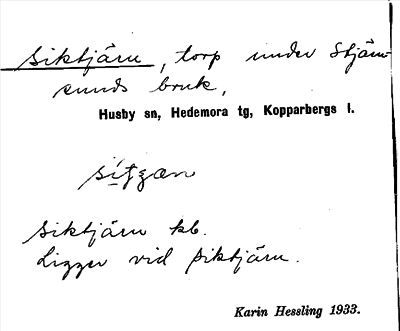 Siktjärn, torp under Stjärn-
sunds bruk,
Husby sn, Hedemora tg, Kopparbergs l.
siktjärn kb.
Ligger vid Siktjärn.
Karin Hessling 1933.